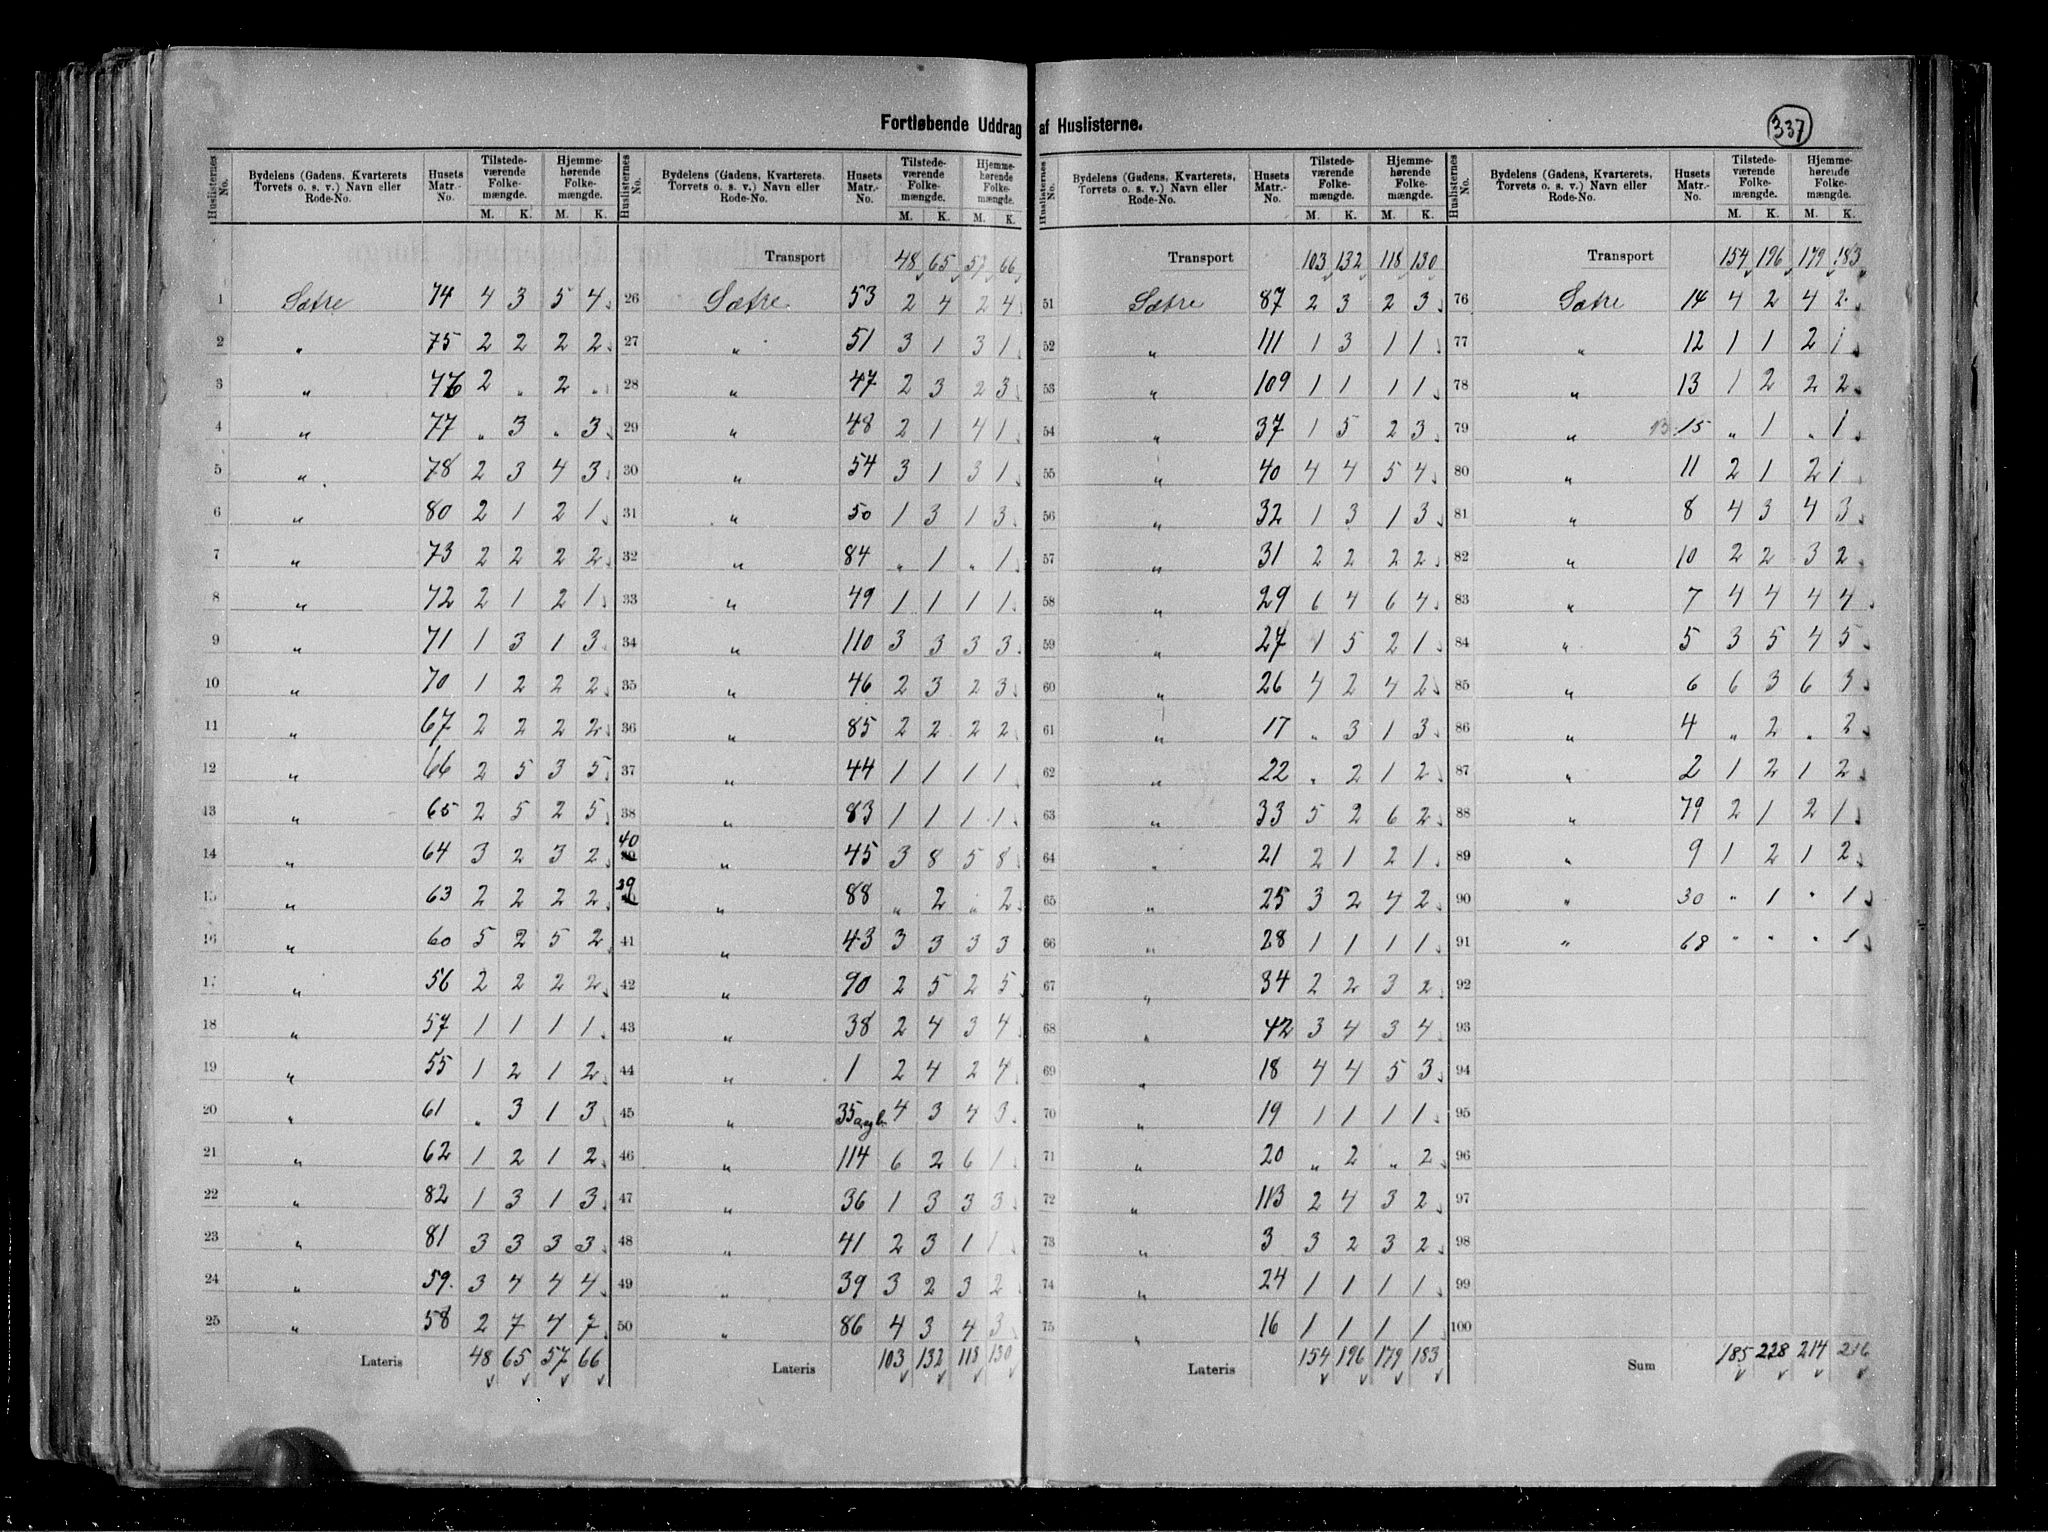 Fortløbende Uddrag af Huslisterne.
337
Huslisternes No. | Bydelens (Gadens, Kvarterets Torvets o. s. v.) Navn eller Rode-No. | Husets Matr.-No. | Tilstedeværende Folkemængde. M. K. | Hjemmehørende Folkemængde. M. K.
1 Sætre 74 4 3 5 4
2 " 75 2 2 2 2
3 " 76 2 " 2 "
4 " 77 " 3 " 3
5 " 78 2 3 4 3
6 " 80 2 1 2 1
7 " 73 2 2 2 2
8 " 72 2 1 2 1
9 " 71 1 3 1 3
10 " 70 1 2 2 2
11 " 67 2 2 2 2
12 " 66 2 5 3 5
13 " 65 2 5 2 5
14 " 64 3 2 3 2
15 " 63 2 2 2 2
16 " 60 5 2 5 2
17 " 56 2 2 2 2
18 " 57 1 1 1 1
19 " 55 1 2 1 2
20 " 61 " 3 1 3
21 " 62 1 2 1 2
22 " 82 1 3 1 3
23 " 81 3 3 3 3
24 " 59. 3 4 4 4
25 " 58 2 7 4 7
Lateris 48 65 57 66
Huslisternes No. | Bydelens (Gadens, Kvarterets. Torvets o. s. v.) Navn eller Rode-No. | Husets Matr.-No. | Tilstedeværende Folkemængde. M. K. | Hjemmehørende Folkemængde. M. K.
Transport 48 65 57 66
26 Sætre 53 2 4 2 4
27 " 51 3 1 3 1
28 " 47 2 3 2 3
29 " 48 2 1 4 1
30 " 54 3 1 3 1
31 " 50 1 3 1 3
32 " 84 " 1 " 1
33 " 49 1 1 1 1
34 " 110 3 3 3 3
35 " 46 2 3 2 3
36 " 85 2 2 2 2
37 " 44 1 1 1 1
38 " 83 1 1 1 1
40 " 45 3 8 5 8
39 " 88 " 2 " 2
41 " 43 3 3 3 3
42 " 90 2 5 2 5
43 " 38 2 4 3 4
44 " 1 2 4 2 4
45 " 35 4 3 4 3
46 " 114 6 2 6 1
47 " 36 1 3 3 3
48 " 41 2 3 1 1
49 " 39 3 2 3 2
50 " 86 4 3 4 3
Lateris 103 132 118 130
Huslisternes No. | Bydelens (Gadens, Kvarterets, Torvets o. s. v.) Navn eller Rode-No. | Husets Matr.-No. | Tilstedeværende Folkemængde. M. K. | Hjemmehørende Folkemængde. M. K.
Transport 103 132 118 130
51 Sætre 87 2 3 2 3
52 " 111 1 3 1 1
53 " 109 1 1 1 1
54 " 37 1 5 2 3
55 " 40 4 4 5 4
56 " 32 1 3 1 3
57 " 31 2 2 2 2
58 " 29 6 4 6 4
59 " 27 1 5 2 1
60 " 26 4 2 4 2
61 " 17 " 3 1 3
62 " 22 " 2 1 2
63 " 33 5 2 6 2
64 " 21 2 1 2 1
65 " 25 3 2 4 2
66 " 28 1 1 1 1
67 " 34 2 2 3 2
68 " 42 3 4 3 4
69 " 18 4 4 5 3
70 " 19 1 1 1 1
71 " 20 " 2 " 2
72 " 113 2 4 3 2
73 " 3 3 2 3 2
74 " 24 1 1 1 1
75 " 16 1 1 1 1
Lateris 154 196 179 183
Huslisternes No. | Bydelens (Gadens, Kvarterets, Torvets o. s. v.) Navn eller Rode-No. | Husets Matr.-No. | Tilstedeværende Folkemængde. M. K. | Hjemmehørende Folkemængde. M. K.
Transport 154 196 179 183
76 Sætre 14 4 2 4 2
77 " 12 1 1 2 1
78 " 13 1 2 2 2
79 " 15 " 1 " 1
80 " 11 2 1 2 1
81 " 8 4 3 4 3
82 " 10 2 2 3 2
83 " 7 4 4 4 4
84 " 5 3 5 4 5
85 " 6 6 3 6 3
86 " 4 " 2 " 2
87 " 2 1 2 1 2
88 " 79 2 1 2 1
89 " 9 1 2 1 2
90 " 30 " 1 " 1
91 " 68 " " " 1
92
93
94
95
96
97
98
99
100
Sum 185 228 214 216